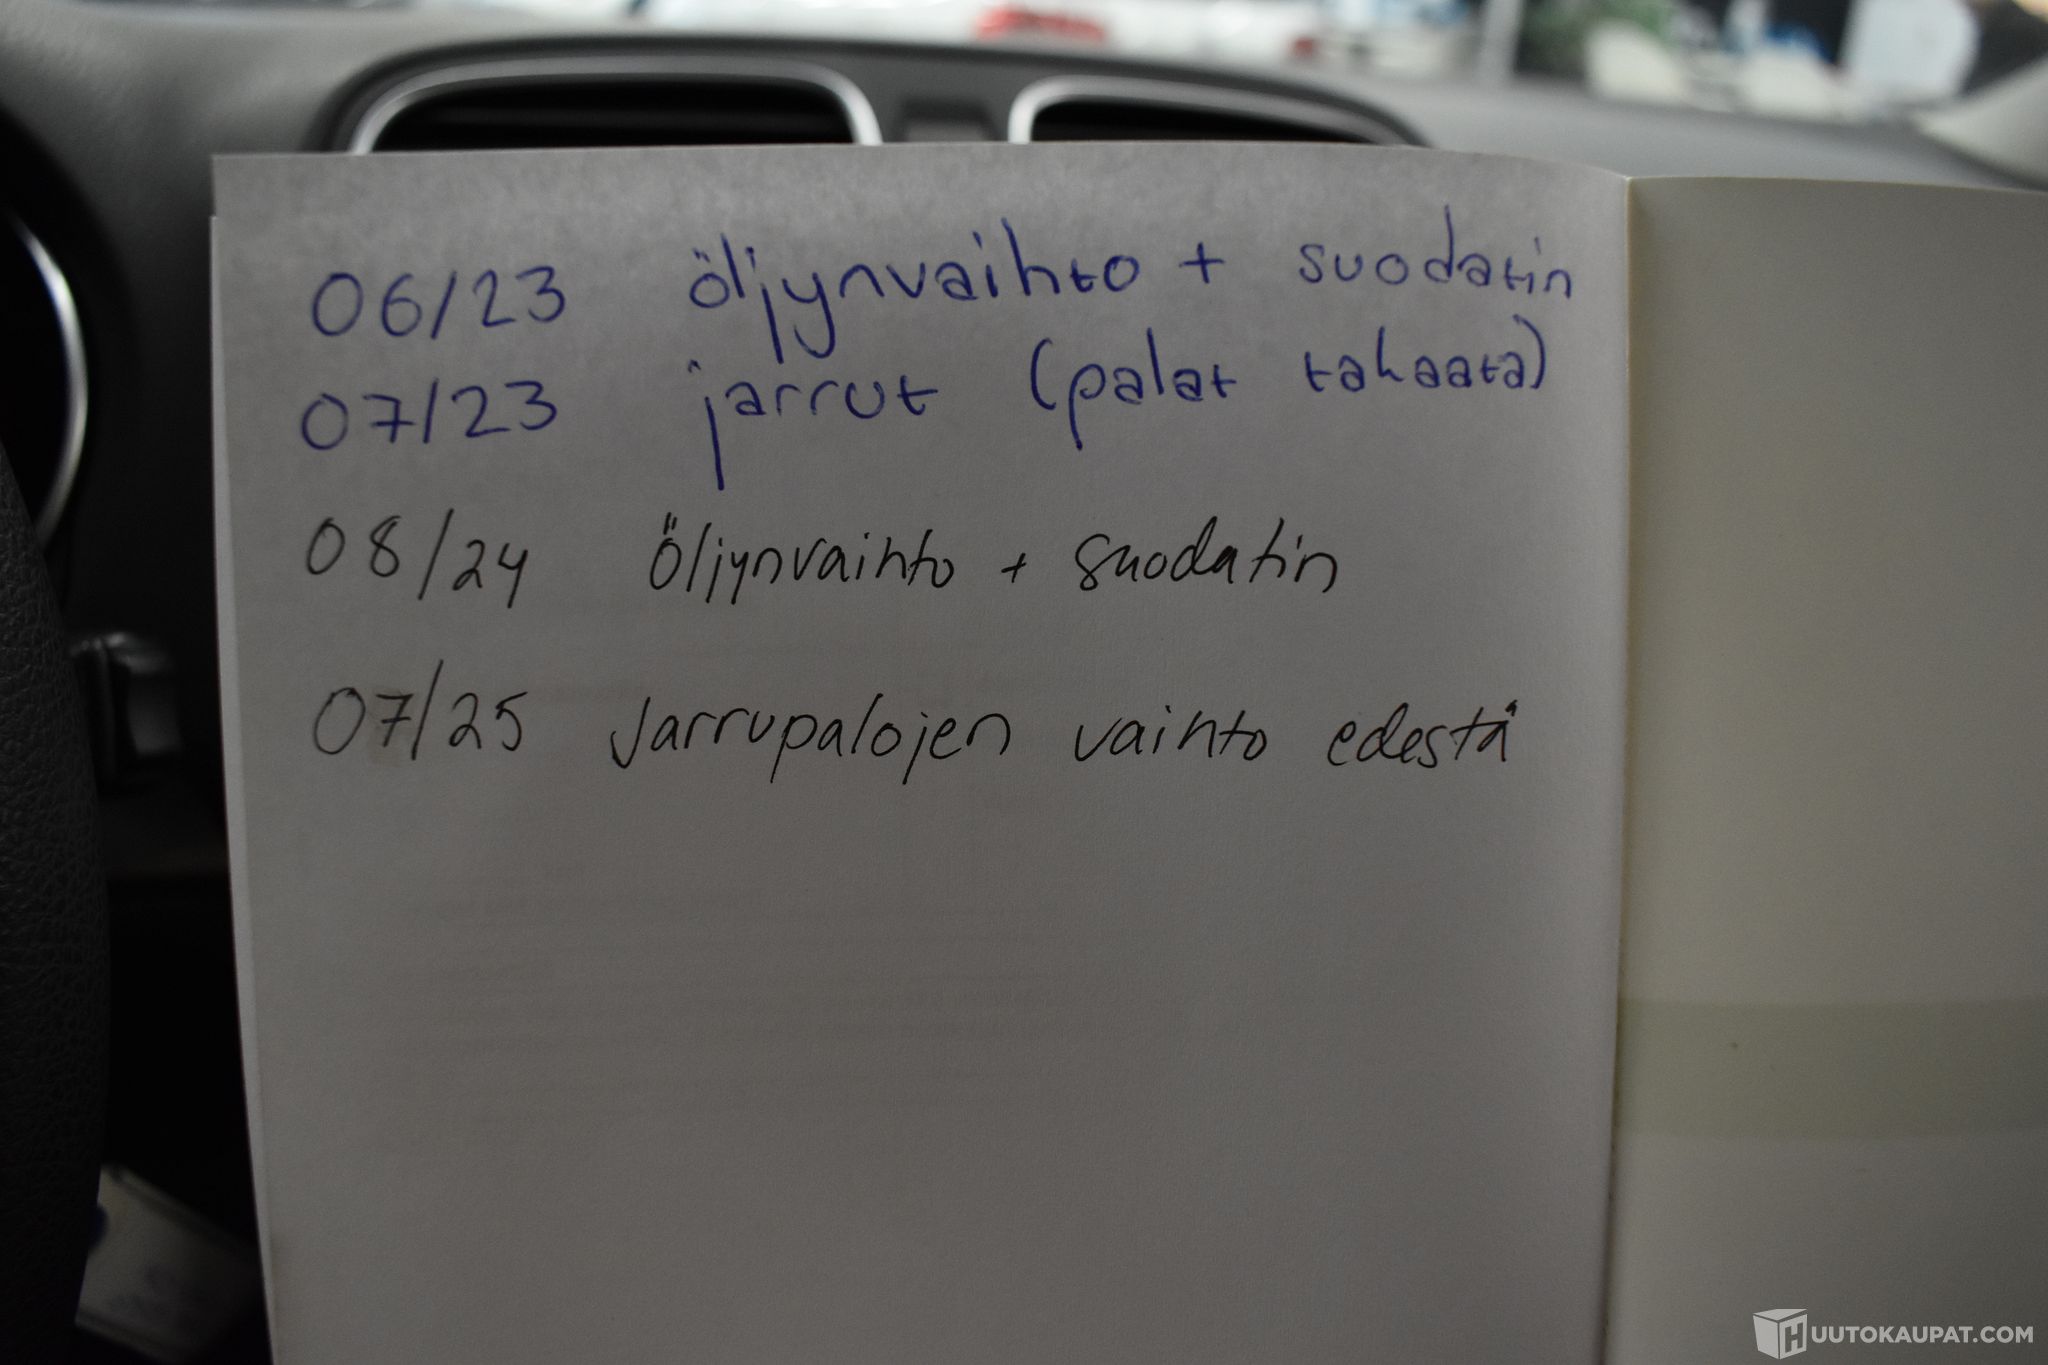 06/23 öljynvaihto + suodatin
07/23 jarrut (palat takaata)
08/24 Öljynvaihto + suodatin
07/25 Jarrupalojen vaihto edestä
HUUTOKAUPAT.COM